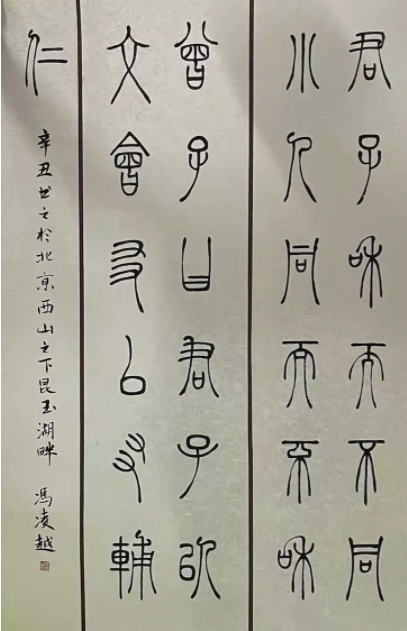 君子和而不同
小人同而不和
曾子曰君子以
文會友以友輔
仁
辛丑书之於北京西山之下昆玉湖畔 馮凌越